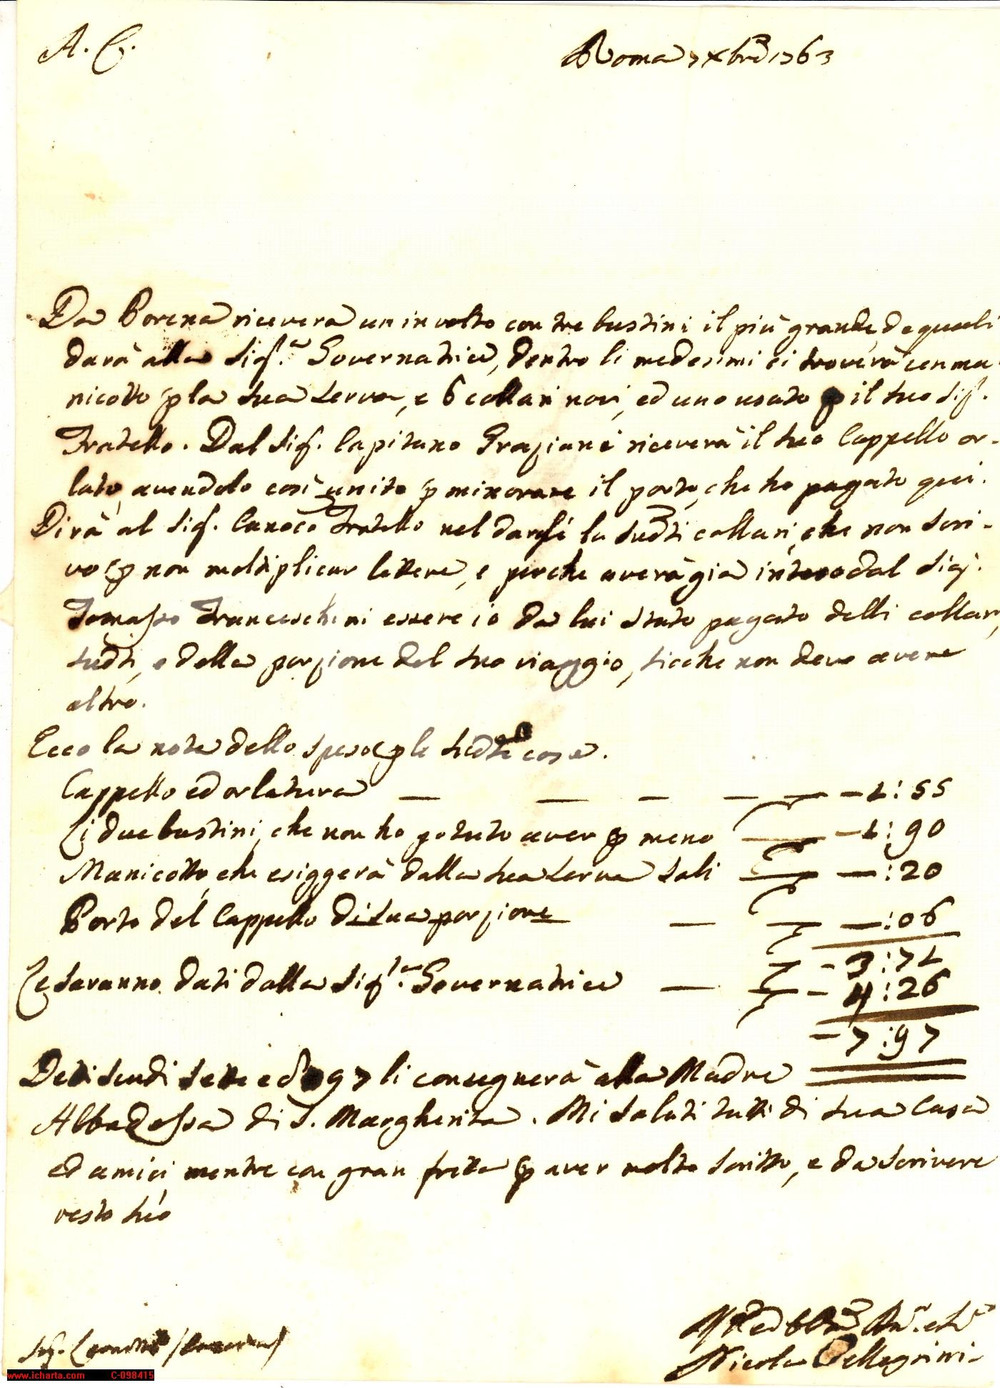 A. C.
Roma 7 Xbre 1763
Da Porena riceverà un involto con tre bustini il più grande de quali
darà alla Sig.ra Governatrice, dentro li medesimi ci troverà un ma-
nicotto p la sua serva, e 6 collari novi, ed uno usato p il suo Sig.
Fratello. Dal Sig. Capitano Graziani riceverà il suo Cappello or-
lato, avendolo così unito p minorare il porto, che ho pagato qui.
Dirà al Sig. Canoco Fratello nel darli li sudti collari, che non scri-
vo p non moltiplicar lettere, e perche averà già inteso dal Sig.
Tomasso Franceschini essere io da lui stato pagato delli collari
sudti, e della porzione del suo viaggio, sicche non devo avere
altro.
Ecco la nota delle spese p le sudte cose.
Cappello ed orlatura — — — — — 1:55
Li due bustini, che non ho potuto aver p meno — 1:90
Manicotto, che esiggerà dalla sua serva Sali — — :20
Porto del Cappello di sua porzione — — — :06
3:71
Le saranno dati dalla Sig.ra Governatrice — — 4:26
7:97
Detti scudi sette e 97 li consegnerà alla Madre
Abbadessa di S. Margherita. Mi saluti tutti di sua Casa
ed amici mentre con gran fretta p aver molto scritto, e da scrivere
resto suo
Nicola Pellegrini
Sig.
www.icharta.com C-098415